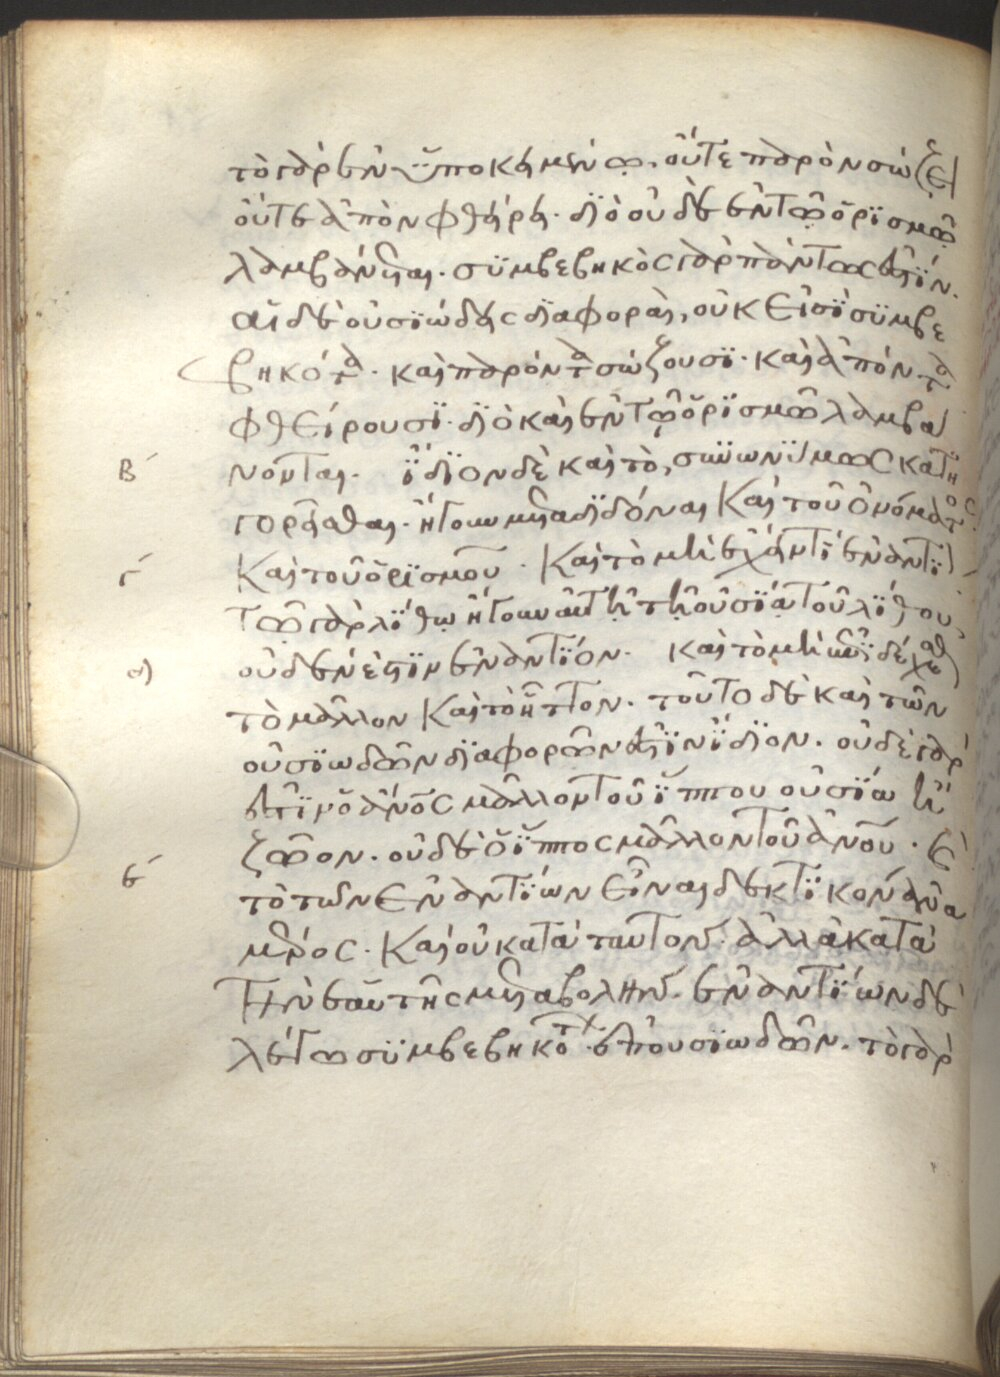 τὸ γὰρ ἐν ὑποκειμένῳ. οὔτε παρὸν σώζει
οὔτε ἀπὸν φθείρει. διὸ οὐδὲ ἐν τῷ ὁρϊσμῷ
λαμβάνεται. συμβεβηκὸς γὰρ πάντως ἐστϊν.
αἱ δὲ οὐσϊώδεις διαφοραὶ, οὐκ εἰσῒ συμβε
βηκότα. καὶ παρόντα σώζουσϊ. καὶ ἀπόντα
φθείρουσϊ. διὸ καὶ ἐν τῷ ὁρϊσμῷ λαμβά
Β νονται. ἴδϊον δὲ καὶ τὸ, συνωνΰμως κατη
γορεῖσθαι. ἤγουν μεταδιδόναι καὶ τοῦ ὀνόματος
Γ καὶ τοῦ ὁρϊσμοῦ. καὶ τὸ μὴ ἔχειν τῒ ἐναντϊ
τῷ γὰρ λίθῳ ἤγουν αὐτῇ τῇ οὐσίᾳ τοῦ λίθου,
δ οὐδέν ἐστϊν ἐναντϊον. καὶ τὸ μὴ ἐπϊδέχεσθαι
τὸ μᾶλλον καὶ τὸ ἧττον. τοῦτο δὲ καὶ τῶν
οὐσϊωδῶν διαφορῶν ἐστῒν ἴδϊον. οὐδὲ γάρ
ἐστϊν ὁ ἄνος μᾶλλον τοῦ ἵππου οὐσϊα ἢ
ζῷον. οὐδὲ ὁ ἵππος μᾶλλον τοῦ ἀνου. καὶ
ε τὸ τῶν ἐναντϊων εἶναι δεκτικὸν ἀνα
μέρος. καὶ οὐ κατὰ ταυτὸν. ἀλλὰ κατὰ
τὴν ἑαυτῆς μεταβολὴν. ἐναντϊων δὲ
λέγω συμβεβηκότων. οὐσϊωδῶν. τὸ γὰρ